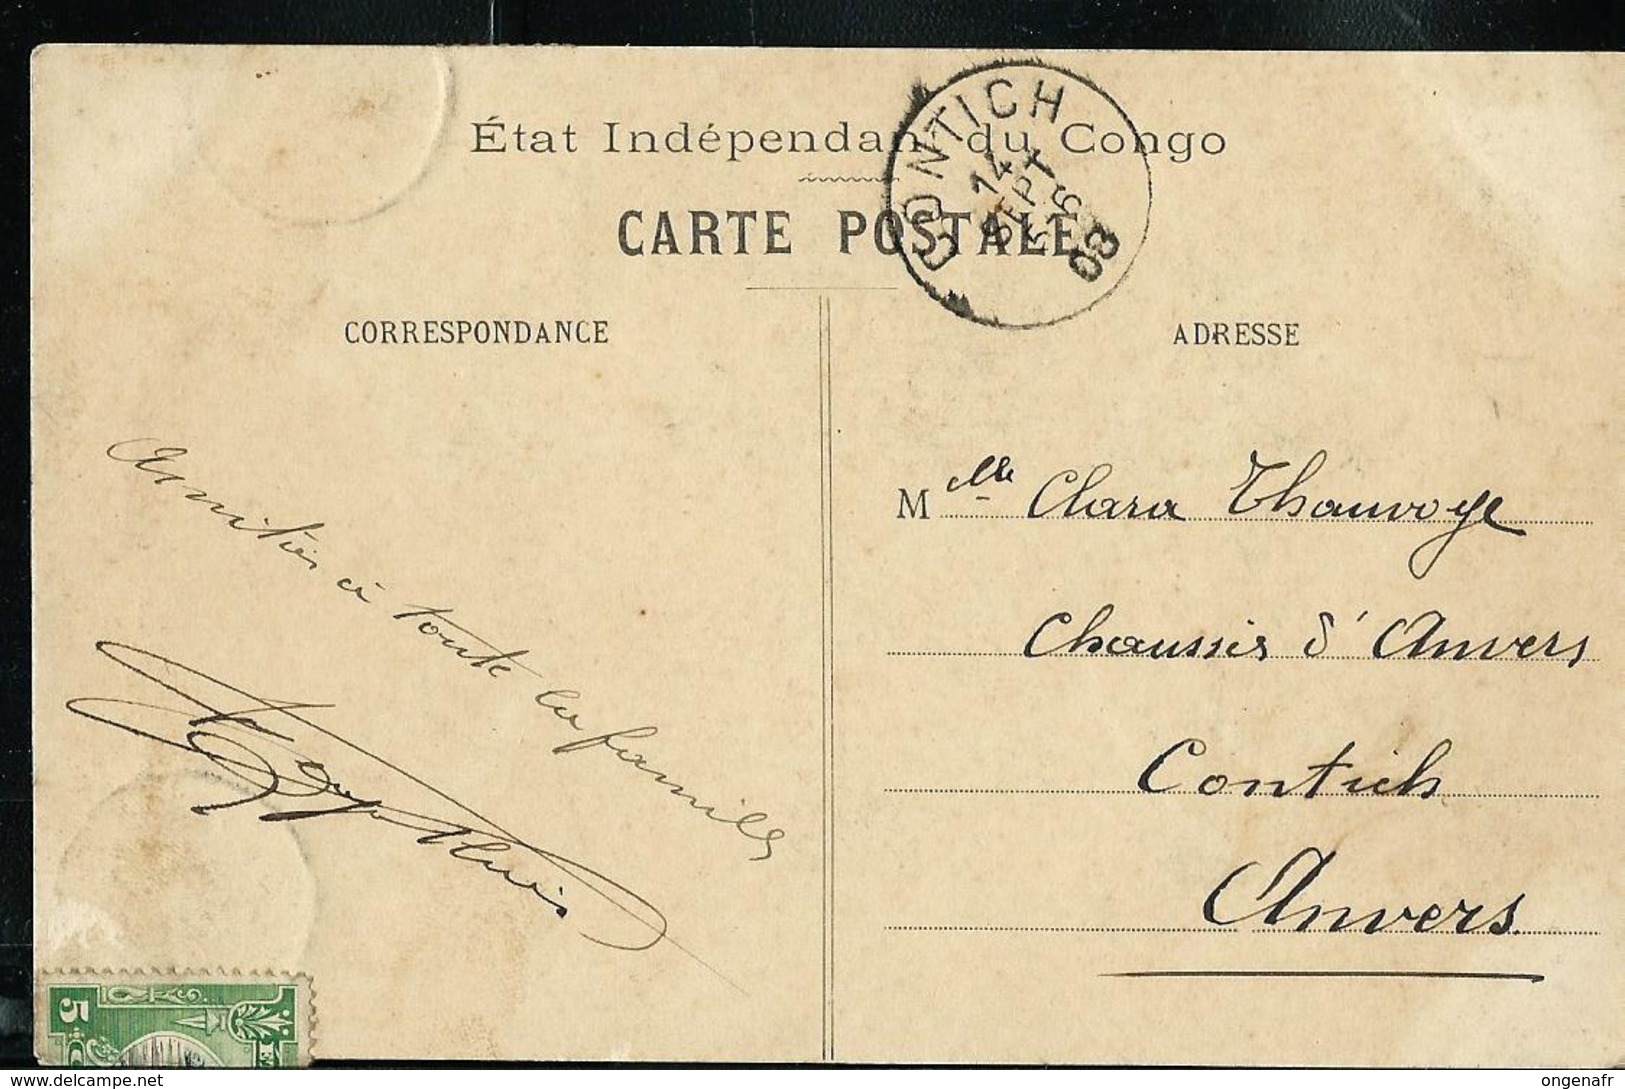 État Indépendant du Congo
CARTE POSTALE
CONTICH
14
SEPT
5-6
08
CORRESPONDANCE
ADRESSE
Amitiés à toute la famille
Mlle Clara Thauvoye
Chaussée d'Anvers
Contich
Anvers.
5
www.delcampe.net
ongenafr